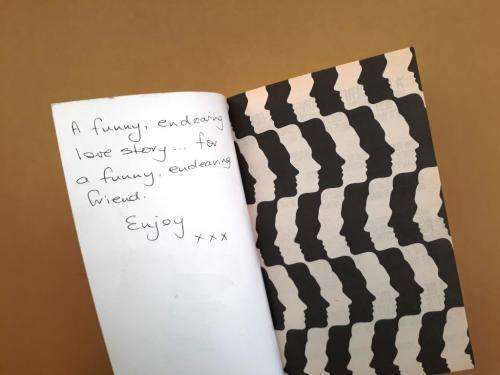 A funny, endearing
love story... for
a funny, endearing
friend.
Enjoy
xxx